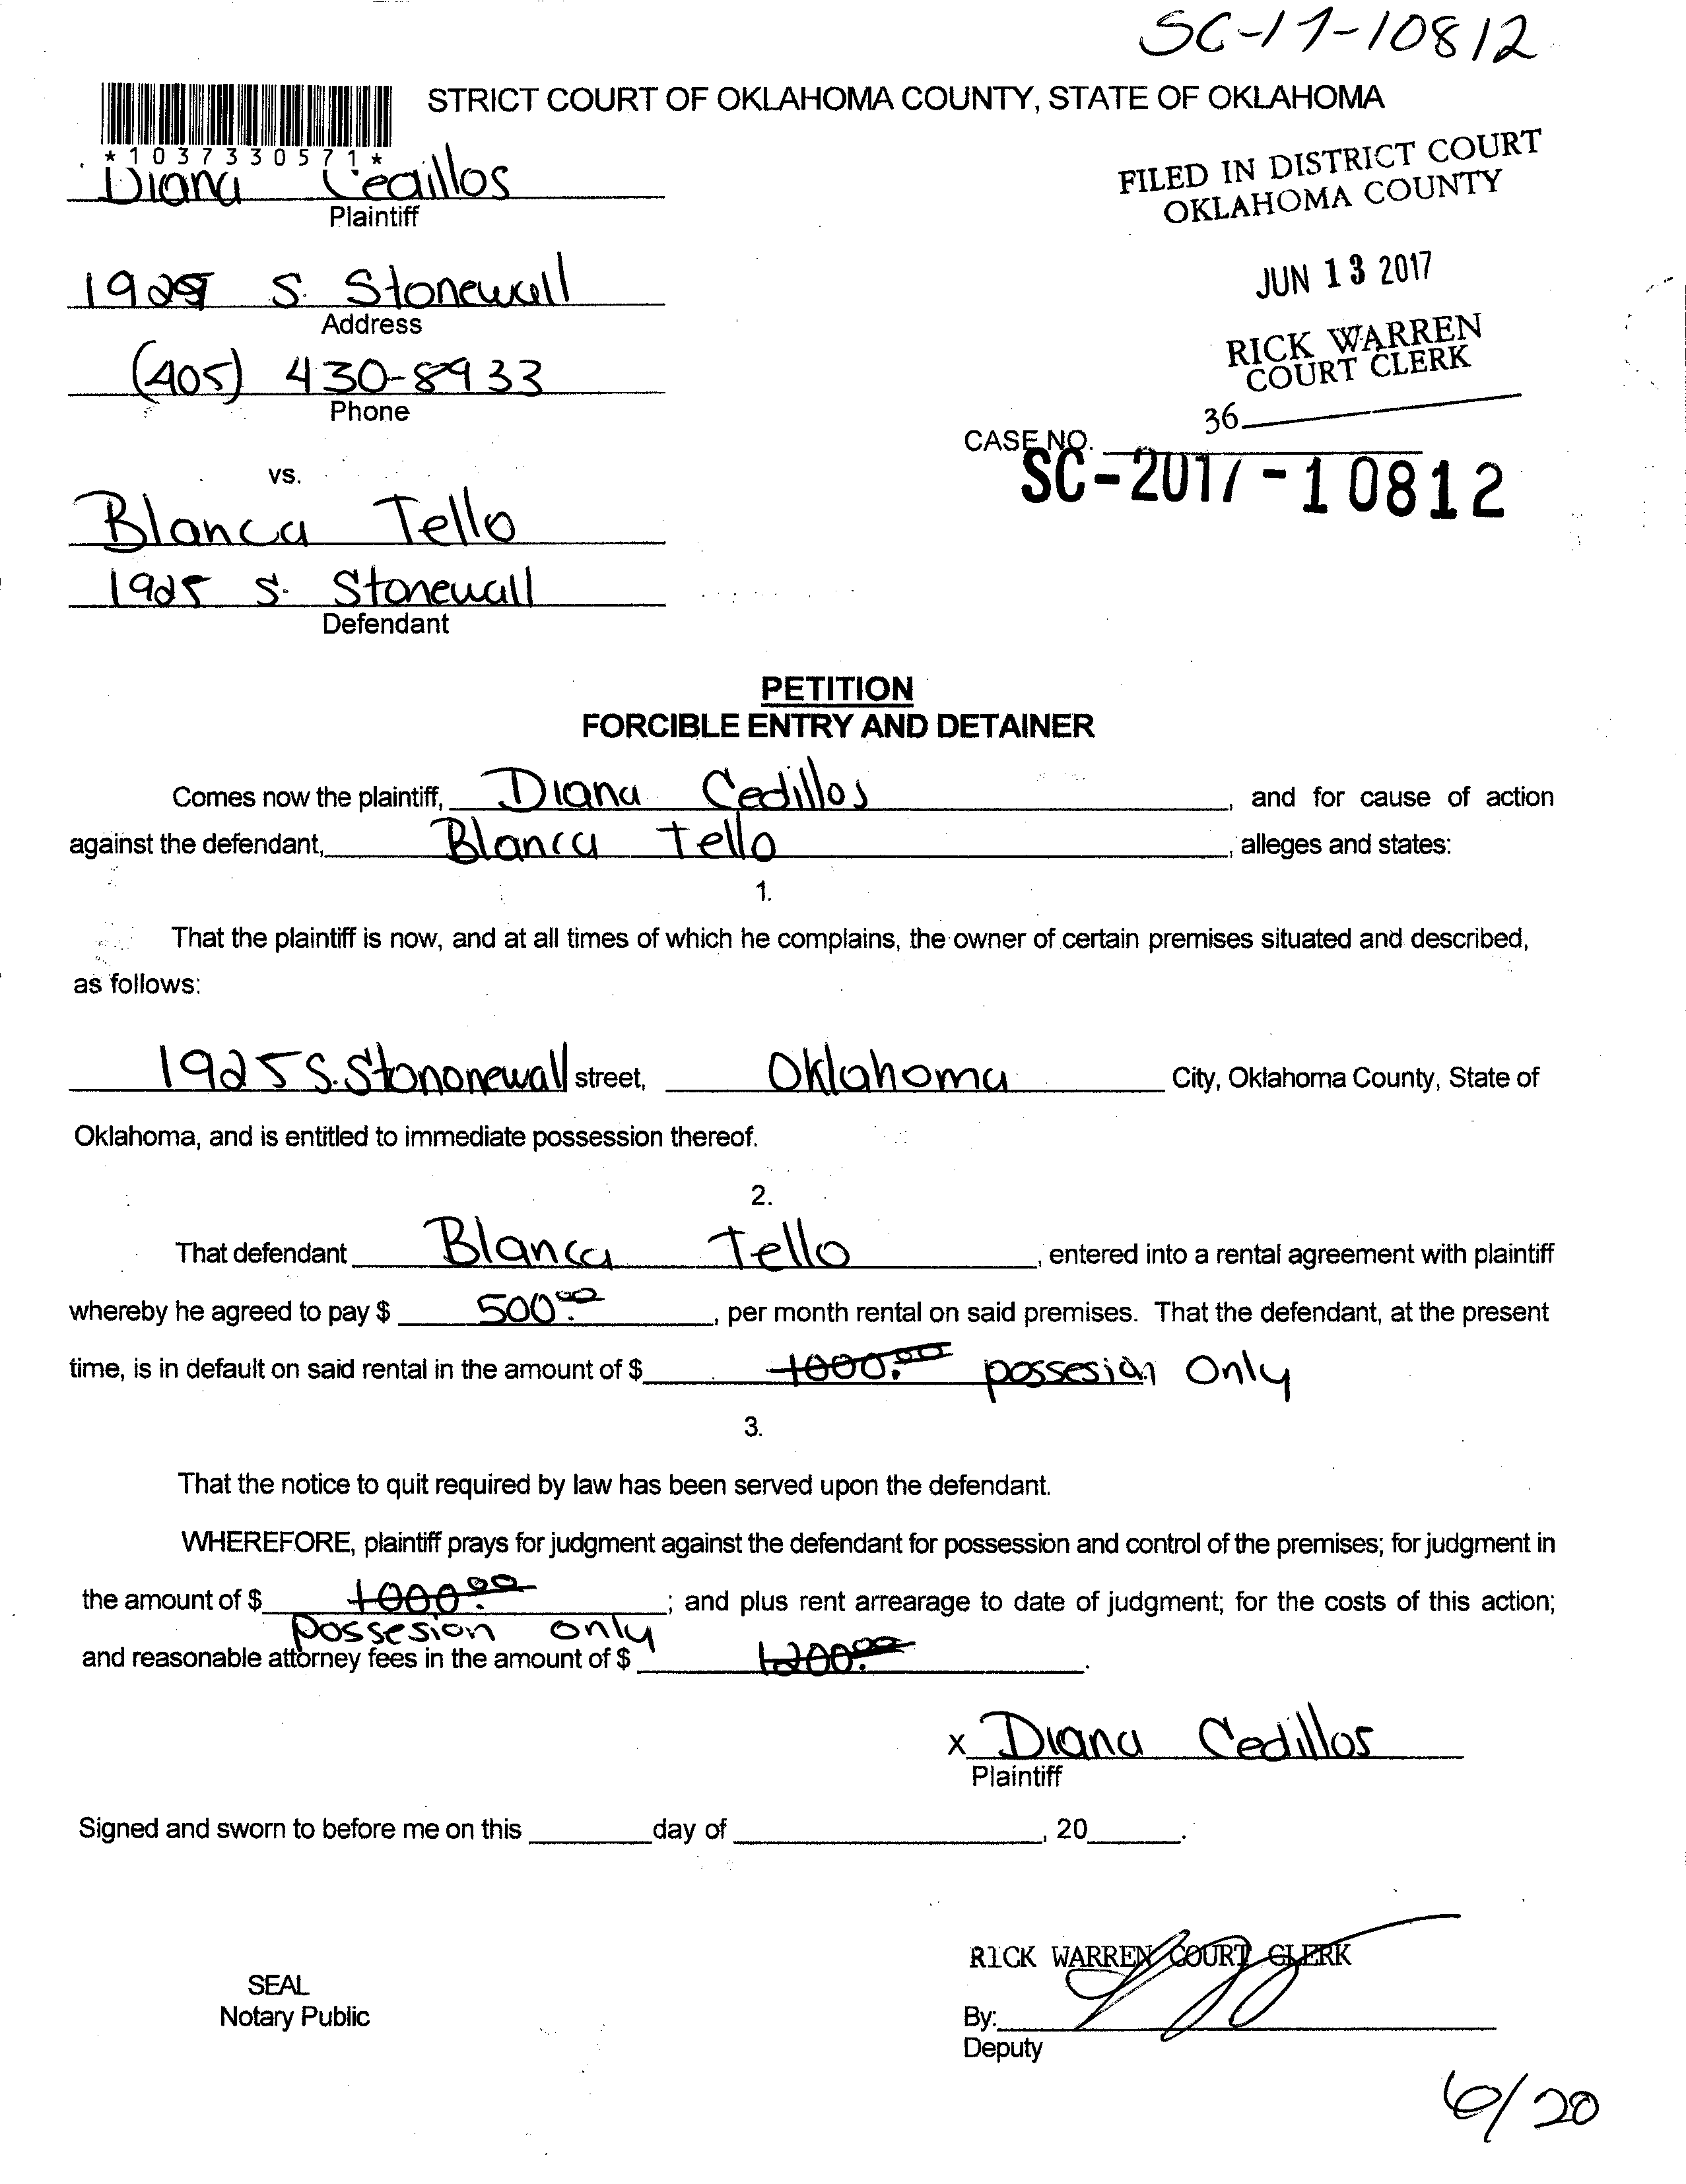 SC-17-10812
STRICT COURT OF OKLAHOMA COUNTY, STATE OF OKLAHOMA
*1037330571*
FILED IN DISTRICT COURT
OKLAHOMA COUNTY
Diana Cedillos
Plaintiff
JUN 13 2017
S. Stonewall
Address
RICK WARREN
COURT CLERK
(405) 430-8933
Phone
36
CASE NO.
SC-2017-10812
vs.
Blanca Tello
1925 S. Stonewall
Defendant
PETITION
FORCIBLE ENTRY AND DETAINER
Comes now the plaintiff, Diana Cedillos, and for cause of action
against the defendant, Blanca Tello, alleges and states:
1.
That the plaintiff is now, and at all times of which he complains, the owner of certain premises situated and described,
as follows:
1925 S. Stononewall street, Oklahoma City, Oklahoma County, State of
Oklahoma, and is entitled to immediate possession thereof.
2.
That defendant Blanca Tello, entered into a rental agreement with plaintiff
whereby he agreed to pay $ 500.00, per month rental on said premises. That the defendant, at the present
time, is in default on said rental in the amount of $ 1000.00 possesion Only
3.
That the notice to quit required by law has been served upon the defendant.
WHEREFORE, plaintiff prays for judgment against the defendant for possession and control of the premises; for judgment in
the amount of $ 1000.00; and plus rent arrearage to date of judgment; for the costs of this action;
possesion only
and reasonable attorney fees in the amount of $ 1200.00.
x Diana Cedillos
Plaintiff
Signed and sworn to before me on this day of , 20 .
RICK WARREN COURT CLERK
SEAL
Notary Public
By:
Deputy
6/20